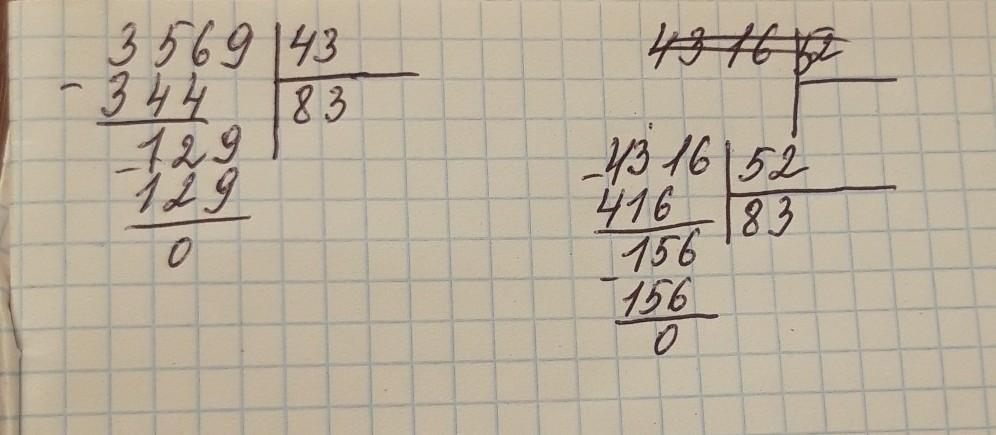 3569 43
- 344 83
- 129
129
0
4316 52
- 4316 52
416 83
- 156
156
0